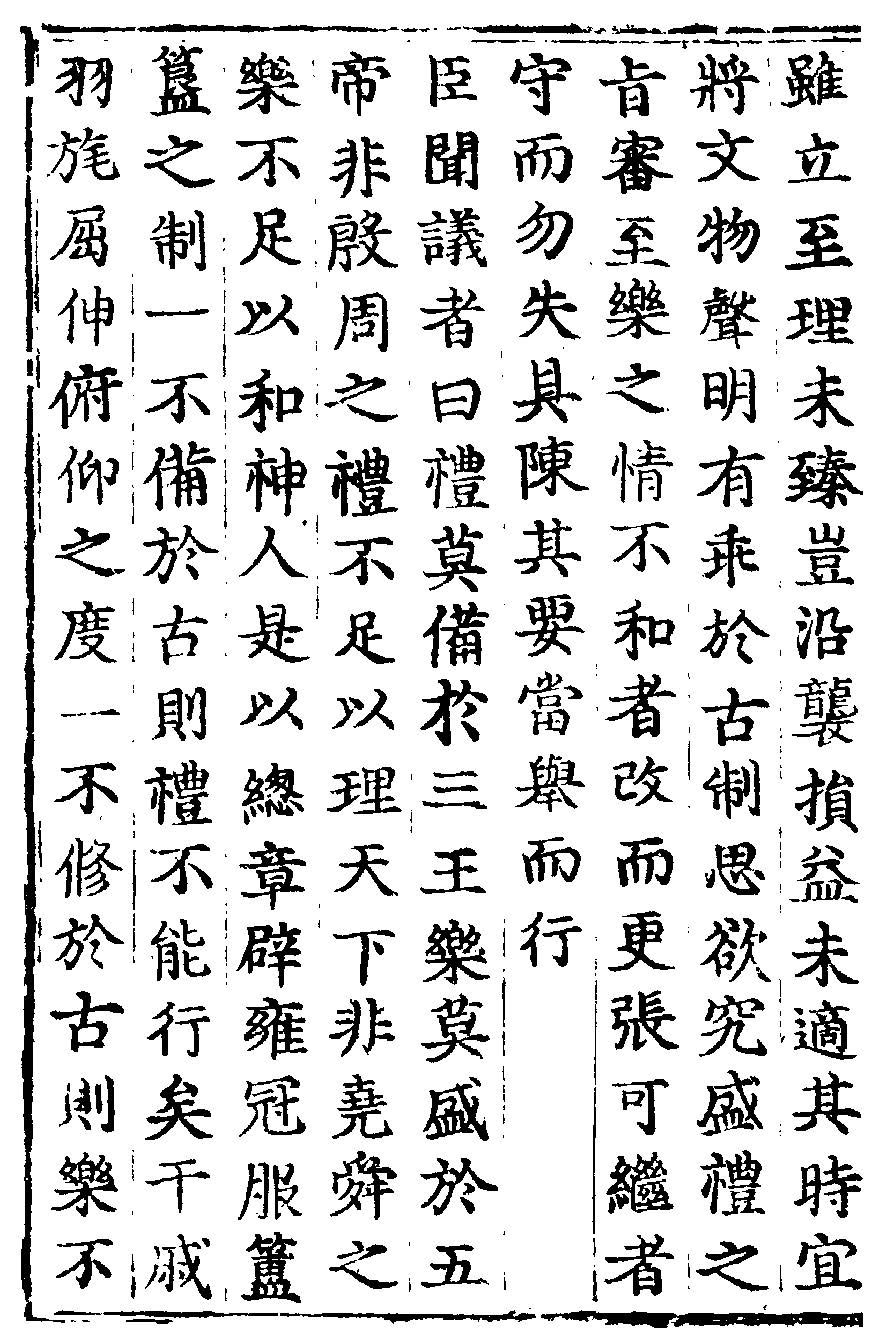 雖立至理未臻豈沿襲損益未適其時宜
將文物聲明有乖於古制思欲究盛禮之
旨審至樂之情不和者改而更張可繼者
守而勿失具陳其要當舉而行
臣聞議者曰禮莫備於三王樂莫盛於五
帝非殷周之禮不足以理天下非堯舜之
樂不足以和神人是以總章辟雍冠服簠
簋之制一不備於古則禮不能行矣干戚
羽旄屈伸俯仰之度一不修於古則樂不